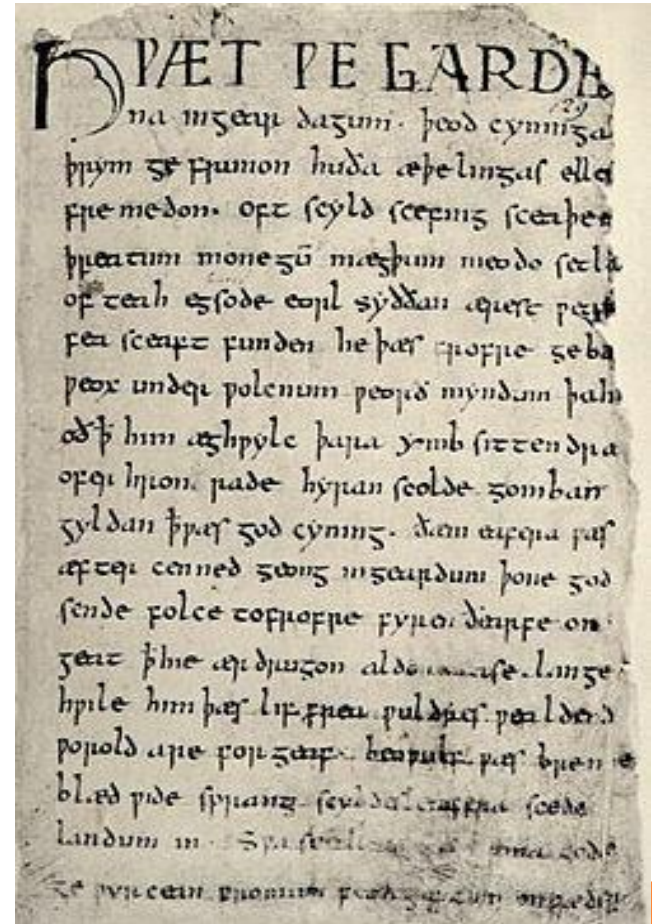 HǷÆT ǷE GARDE
129
na ingear dagum. þeod cyninga
þrym ge frunon huða æþelingas ellen
fre medon. oft scyld scefing sceaþen
þreatum monegū mægþum meodo setla
of teah egsode eorl syððan ærest ƿear
fea sceaft funden he þæs frofre geba
ƿeox under ƿolcnum ƿeorð myndum þah
oð ꝥ him æghƿylc þara ymb sittendra
ofer hron rade hyran scolde gomban
gyldan ꝥ ƿæs god cyning. ðæm eafera ƿæs
æfter cenned geong ingeardum þone god
sende folce tofrofre fyren ðearfe on
geat ꝥ hie ær drugon aldor ase. lange
hƿile him þæs lif frea ƿuldres ƿealdend
ƿorold are for geaf. beoƿulf ƿæs breme
blæd ƿide sprang scyldes eafera scede
landum in. Sƿa sceal guma gode
ge ƿyrcean fromum feoh giftum